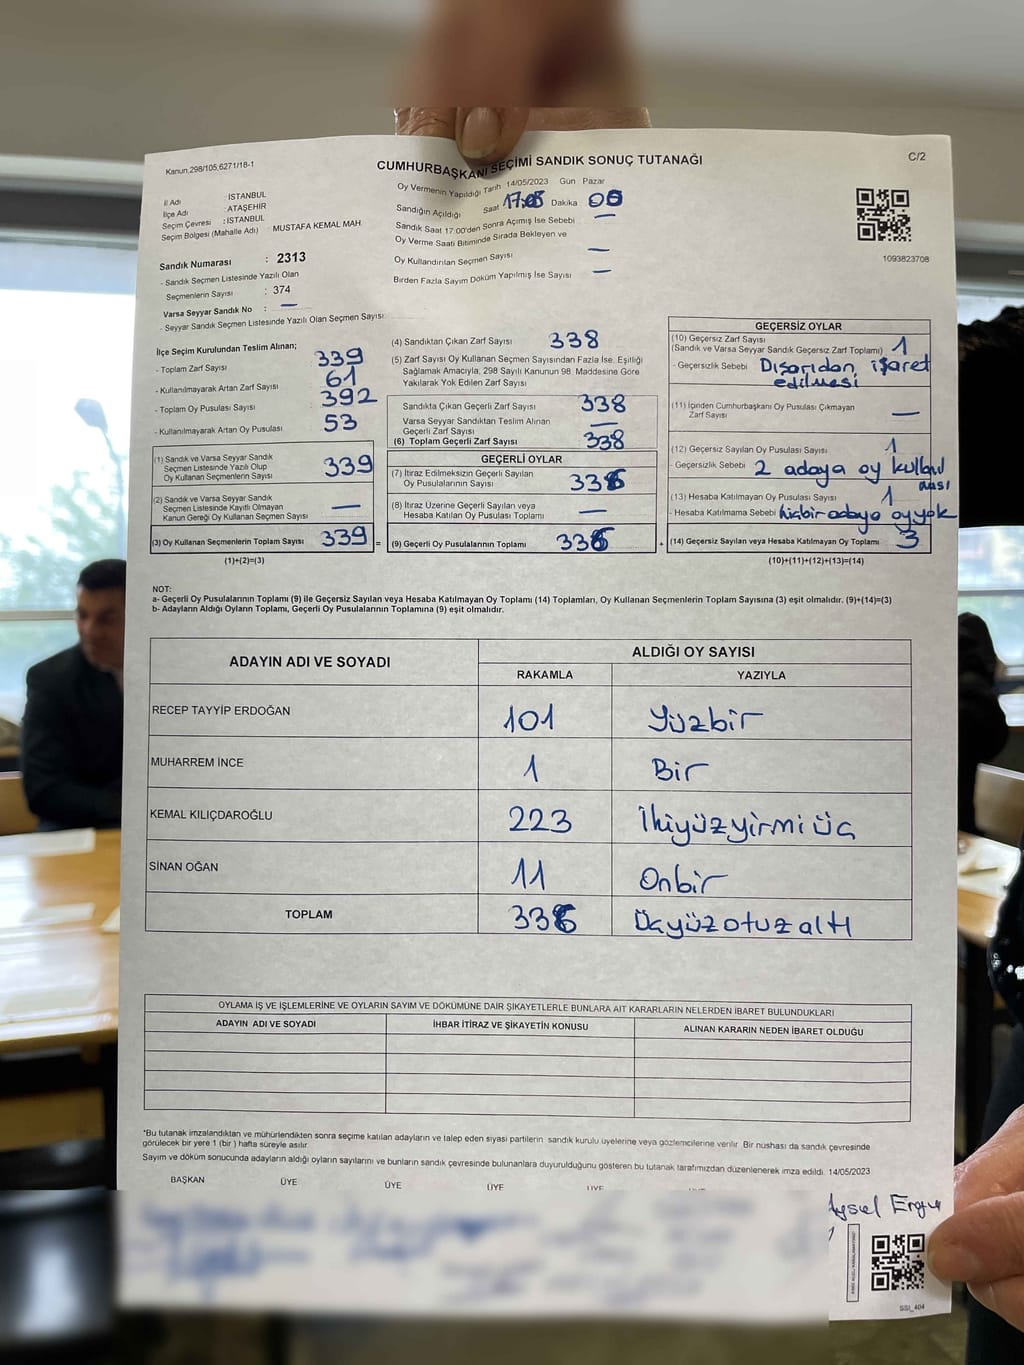 Kanun,298/105,6271/18-1
CUMHURBAŞKANI SEÇİMİ SANDIK SONUÇ TUTANAĞI
C/2
Oy Vermenin Yapıldığı Tarih 14/05/2023 Gün Pazar
İl Adı : İSTANBUL
İlçe Adı : ATAŞEHİR
Seçim Çevresi : İSTANBUL
Seçim Bölgesi (Mahalle Adı) MUSTAFA KEMAL MAH
Sandığın Açıldığı Saat 17:05 Dakika
Sandık Saat 17:00'den Sonra Açımış İse Sebebi —
Oy Verme Saati Bitiminde Sırada Bekleyen ve
Oy Kullandırılan Seçmen Sayısı —
Birden Fazla Sayım Döküm Yapılmış İse Sayısı —
1093823708
Sandık Numarası : 2313
- Sandık Seçmen Listesinde Yazılı Olan
Seçmenlerin Sayısı : 374
Varsa Seyyar Sandık No : —
- Seyyar Sandık Seçmen Listesinde Yazılı Olan Seçmen Sayısı:
İlçe Seçim Kurulundan Teslim Alınan;
- Toplam Zarf Sayısı 339
- Kullanılmayarak Artan Zarf Sayısı 61
- Toplam Oy Pusulası Sayısı 392
- Kullanılmayarak Artan Oy Pusulası 53
(1) Sandık ve Varsa Seyyar Sandık
Seçmen Listesinde Yazılı Olup
Oy Kullanan Seçmenlerin Sayısı 339
(2) Sandık ve Varsa Seyyar Sandık
Seçmen Listesinde Kayıtlı Olmayan
Kanun Gereği Oy Kullanan Seçmen Sayısı —
(3) Oy Kullanan Seçmenlerin Toplam Sayısı 339 =
(1)+(2)=(3)
(4) Sandıktan Çıkan Zarf Sayısı 338
(5) Zarf Sayısı Oy Kullanan Seçmen Sayısından Fazla İse, Eşitliği
Sağlamak Amacıyla, 298 Sayılı Kanunun 98. Maddesine Göre
Yakılarak Yok Edilen Zarf Sayısı
Sandıkta Çıkan Geçerli Zarf Sayısı 338
Varsa Seyyar Sandıktan Teslim Alınan
Geçerli Zarf Sayısı —
(6) Toplam Geçerli Zarf Sayısı 338
GEÇERLİ OYLAR
(7) İtiraz Edilmeksizin Geçerli Sayılan
Oy Pusulalarının Sayısı 336
(8) İtiraz Üzerine Geçerli Sayılan veya
Hesaba Katılan Oy Pusulası Toplamı —
(9) Geçerli Oy Pusulalarının Toplamı 336 +
GEÇERSİZ OYLAR
(10) Geçersiz Zarf Sayısı
(Sandık ve Varsa Seyyar Sandık Geçersiz Zarf Toplamı) 1
- Geçersizlik Sebebi Dışarıdan işaret
edilmesi
(11) İçinden Cumhurbaşkanı Oy Pusulası Çıkmayan
Zarf Sayısı —
(12) Geçersiz Sayılan Oy Pusulası Sayısı 1
- Geçersizlik Sebebi 2 adaya oy kullanıl
ması
(13) Hesaba Katılmayan Oy Pusulası Sayısı 1
- Hesaba Katılmama Sebebi hiçbir adaya oy yok
(14) Geçersiz Sayılan veya Hesaba Katılmayan Oy Toplamı 3
(10)+(11)+(12)+(13)=(14)
NOT:
a- Geçerli Oy Pusulalarının Toplamı (9) ile Geçersiz Sayılan veya Hesaba Katılmayan Oy Toplamı (14) Toplamları, Oy Kullanan Seçmenlerin Toplam Sayısına (3) eşit olmalıdır. (9)+(14)=(3)
b- Adayların Aldığı Oyların Toplamı, Geçerli Oy Pusulalarının Toplamına (9) eşit olmalıdır.
ADAYIN ADI VE SOYADI
ALDIĞI OY SAYISI
RAKAMLA YAZIYLA
RECEP TAYYİP ERDOĞAN 101 Yüzbir
MUHARREM İNCE 1 Bir
KEMAL KILIÇDAROĞLU 223 İkiyüzyirmiüç
SİNAN OĞAN 11 Onbir
TOPLAM 336 Üçyüzotuzaltı
OYLAMA İŞ VE İŞLEMLERİNE VE OYLARIN SAYIM VE DÖKÜMÜNE DAİR ŞİKAYETLERLE BUNLARA AİT KARARLARIN NELERDEN İBARET BULUNDUKLARI
ADAYIN ADI VE SOYADI İHBAR İTİRAZ VE ŞİKAYETİN KONUSU ALINAN KARARIN NEDEN İBARET OLDUĞU
*Bu tutanak imzalandıktan ve mühürlendikten sonra seçime katılan adayların ve talep eden siyasi partilerin sandık kurulu üyelerine veya gözlemcilerine verilir. Bir nushası da sandık çevresinde
görülecek bir yere 1 (bir) hafta süreyle asılır.
Sayım ve döküm sonucunda adayların aldığı oyların sayılarını ve bunların sandık çevresinde bulunanlara duyurulduğunu gösteren bu tutanak tarafımızdan düzenlenerek imza edildi. 14/05/2023
BAŞKAN ÜYE ÜYE ÜYE ÜYE
Aysel
SSI_404